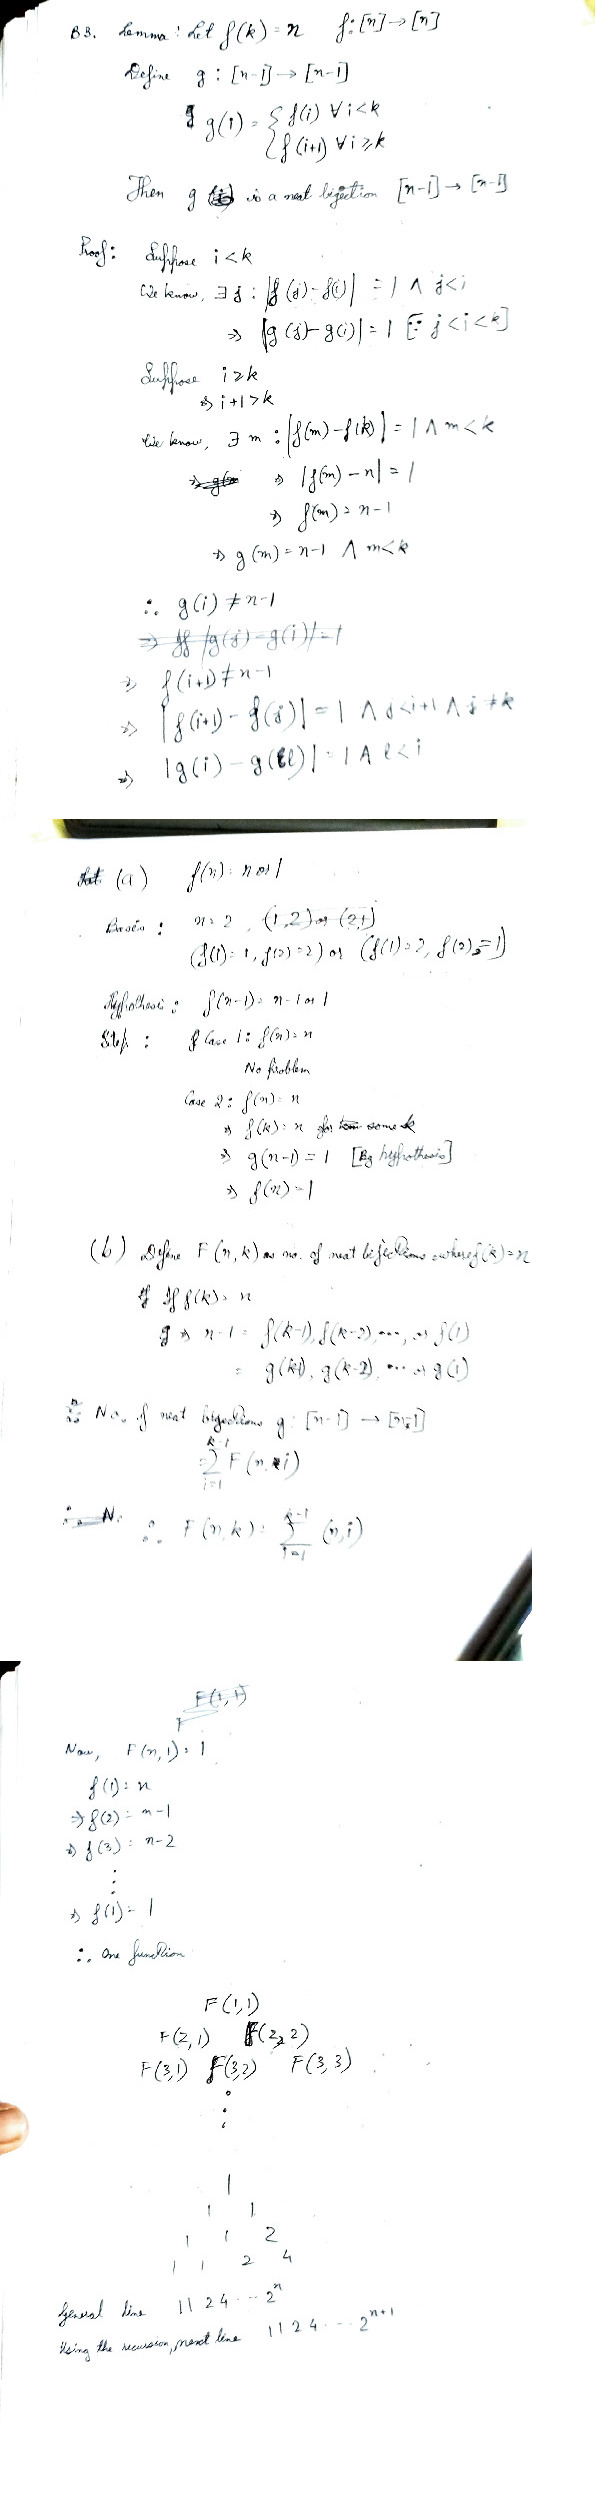 B3. Lemma: Let f(k) = n f: [n] → [n]
Define g : [n-1] → [n-1]
g(i) = { f(i) ∀ i<k
f(i+1) ∀ i ≥ k
Then g is a neat bijection [n-1] → [n-1]
Proof: Suppose i<k
We know, ∃ j : |f(j) - f(i)| = 1 ∧ j<i
⇒ |g(j) - g(i)| = 1 [∵ j<i<k]
Suppose i ≥ k
⇒ i+1 > k
We know, ∃ m : |f(m) - f(k)| = 1 ∧ m<k
⇒ |f(m) - n| = 1
⇒ f(m) = n-1
⇒ g(m) = n-1 ∧ m<k
∴ g(i) ≠ n-1
⇒ |g(j) - g(i)| = 1
⇒ f(i+1) ≠ n-1
⇒ |f(i+1) - f(j)| = 1 ∧ j<i+1 ∧ j ≠ k
⇒ |g(i) - g(l)| = 1 ∧ l<i
(a) f(n) = n or 1
Basis : n=2, (1,2) or (2,1)
(f(1)=1, f(2)=2) or (f(1)=2, f(2)=1)
Hypothesis : f(n-1) = n-1 or 1
Step : Case 1: f(n)=n
No problem
Case 2: f(n) = n
⇒ f(k) = n for some k
⇒ g(n-1) = 1 [By hypothesis]
⇒ f(n) = 1
(b) Define F(n,k) as no. of neat bijections where f(k)=n
If f(k) = n
⇒ n-1 = f(k-1), f(k-2), ..., or f(1)
= g(k-1), g(k-2) ... or g(1)
∴ No. of neat bijections g : [n-1] → [n-1]
= k-1 ∑ i=1 F(n, i)
∴ N.
∴ F(n,k) = k-1 ∑ i=1 (n,i)
F(1,1)
F
Now, F(n,1) = 1
f(1) = n
⇒ f(2) = n-1
⇒ f(3) = n-2
⋮
⇒ f(1) = 1
∴ One function
F(1,1)
F(2,1) F(2,2)
F(3,1) F(3,2) F(3,3)
⋮
1
1 1
1 1 2
1 1 2 4
General line 1 1 2 4 ... 2^n
Using the recursion, next line 1 1 2 4 ... 2^{n+1}